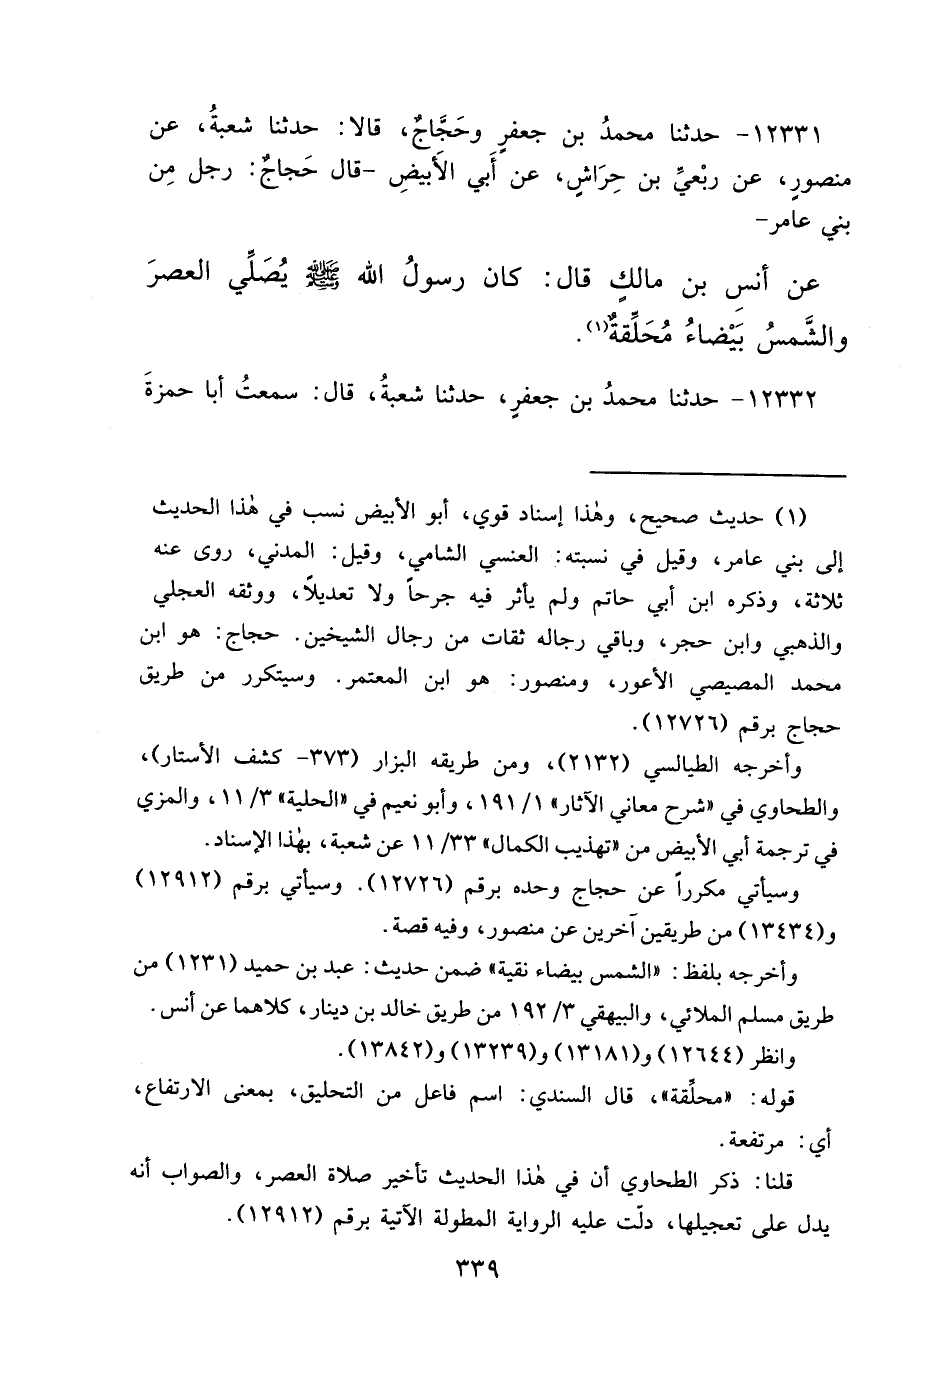 ١٢٣٣١- حدثنا محمدُ بن جعفرٍ وحَجَّاجٌ، قالا: حدثنا شعبةُ، عن
منصورٍ، عن ربْعيِّ بن حِرَاشٍ، عن أَبي الأَبيضِ -قال حَجاجٌ: رجل مِن
بني عامر-
عن أنسِ بن مالكٍ قال: كان رسولُ الله ﷺ يُصَلِّي العصرَ
والشَّمسُ بَيْضاءُ مُحَلِّقةٌ(١).
١٢٣٣٢- حدثنا محمدُ بن جعفرٍ، حدثنا شعبةُ، قال: سمعتُ أبا حمزةَ
(١) حديث صحيح، وهٰذا إسناد قوي، أبو الأبيض نسب في هٰذا الحديث
إلى بني عامر، وقيل في نسبته: العنسي الشامي، وقيل: المدني، روى عنه
ثلاثة، وذكره ابن أبي حاتم ولم يأثر فيه جرحاً ولا تعديلاً، ووثقه العجلي
والذهبي وابن حجر، وباقي رجاله ثقات من رجال الشيخين. حجاج: هو ابن
محمد المصيصي الأعور، ومنصور: هو ابن المعتمر. وسيتكرر من طريق
حجاج برقم (١٢٧٢٦).
وأخرجه الطيالسي (٢١٣٢)، ومن طريقه البزار (٣٧٣- كشف الأستار)،
والطحاوي في «شرح معاني الآثار» ١/ ١٩١، وأبو نعيم في «الحلية» ٣/ ١١، والمزي
في ترجمة أبي الأبيض من «تهذيب الكمال» ٣٣/ ١١ عن شعبة، بهٰذا الإسناد.
وسيأتي مكرراً عن حجاج وحده برقم (١٢٧٢٦). وسيأتي برقم (١٢٩١٢)
و(١٣٤٣٤) من طريقين آخرين عن منصور، وفيه قصة.
وأخرجه بلفظ: «الشمس بيضاء نقية» ضمن حديث: عبد بن حميد (١٢٣١) من
طريق مسلم الملائي، والبيهقي ٣/ ١٩٢ من طريق خالد بن دينار، كلاهما عن أنس.
وانظر (١٢٦٤٤) و(١٣١٨١) و(١٣٢٣٩) و(١٣٨٤٢).
قوله: «محلِّقة»، قال السندي: اسم فاعل من التحليق، بمعنى الارتفاع،
أي: مرتفعة.
قلنا: ذكر الطحاوي أن في هٰذا الحديث تأخير صلاة العصر، والصواب أنه
يدل على تعجيلها، دلّت عليه الرواية المطولة الآتية برقم (١٢٩١٢).
٣٣٩